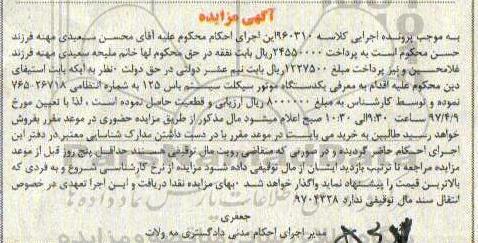 آگهی مزایده
به موجب پرونده اجرایی کلاسه ۹۶۰۳۱۰این اجرای احکام محکوم علیه آقای محسن سعیدی مهنه فرزند
حسن محکوم است به پرداخت ۲۴۵۵۰۰۰۰ریال بابت نفقه در حق محکوم لها خانم ملیحه سعیدی مهنه فرزند
غلامحسین و نیز پرداخت مبلغ ۱۲۲۷۵۰۰ ریال بابت نیم عشر دولتی در حق دولت -نظر به اینکه بابت استیفای
دین محکوم علیه اقدام به معرفی یکدستگاه موتور سیکلت سیستم باس ۱۲۵ به شماره انتظامی ۲۶۷۱۸-۷۶۵
نموده و توسط کارشناس به مبلغ ۸۰۰۰۰۰۰ ریال ارزیابی و قطعیت حاصل نموده است ، لذا با تعیین مورخ
۹۷/۴/۹ ساعت ۹:۳۰الی ۱۰:۳۰ صبح اعلام میشود مال مذکور از طریق مزایده حضوری در موعد مقرر بفروش
خواهد رسید طالبین به خرید می بایست در موعد مقرر با در دست داشتن مدارک شناسایی معتبر در دفتر این
اجرای احکام حاضر گردیده و در صورتی که متقاضی رویت مال توقیفی هستند حداقل پنج روز قبل از موعد
مزایده مراجعه تا ترتیب بازدید ایشان از مال توقیفی داده شود مزایده از نرخ کارشناسی شروع و به فردی که
بالاترین قیمت را پیشنهاد نماید واگذار خواهد شد -بهای مزایده نقدا دریافت و این اجرا تعهدی در خصوص
انتقال سند مال توقیفی ندارد ۹۷۰۴۳۲۸
جعفری
مدیر اجرای احکام مدنی دادگستری مه ولات